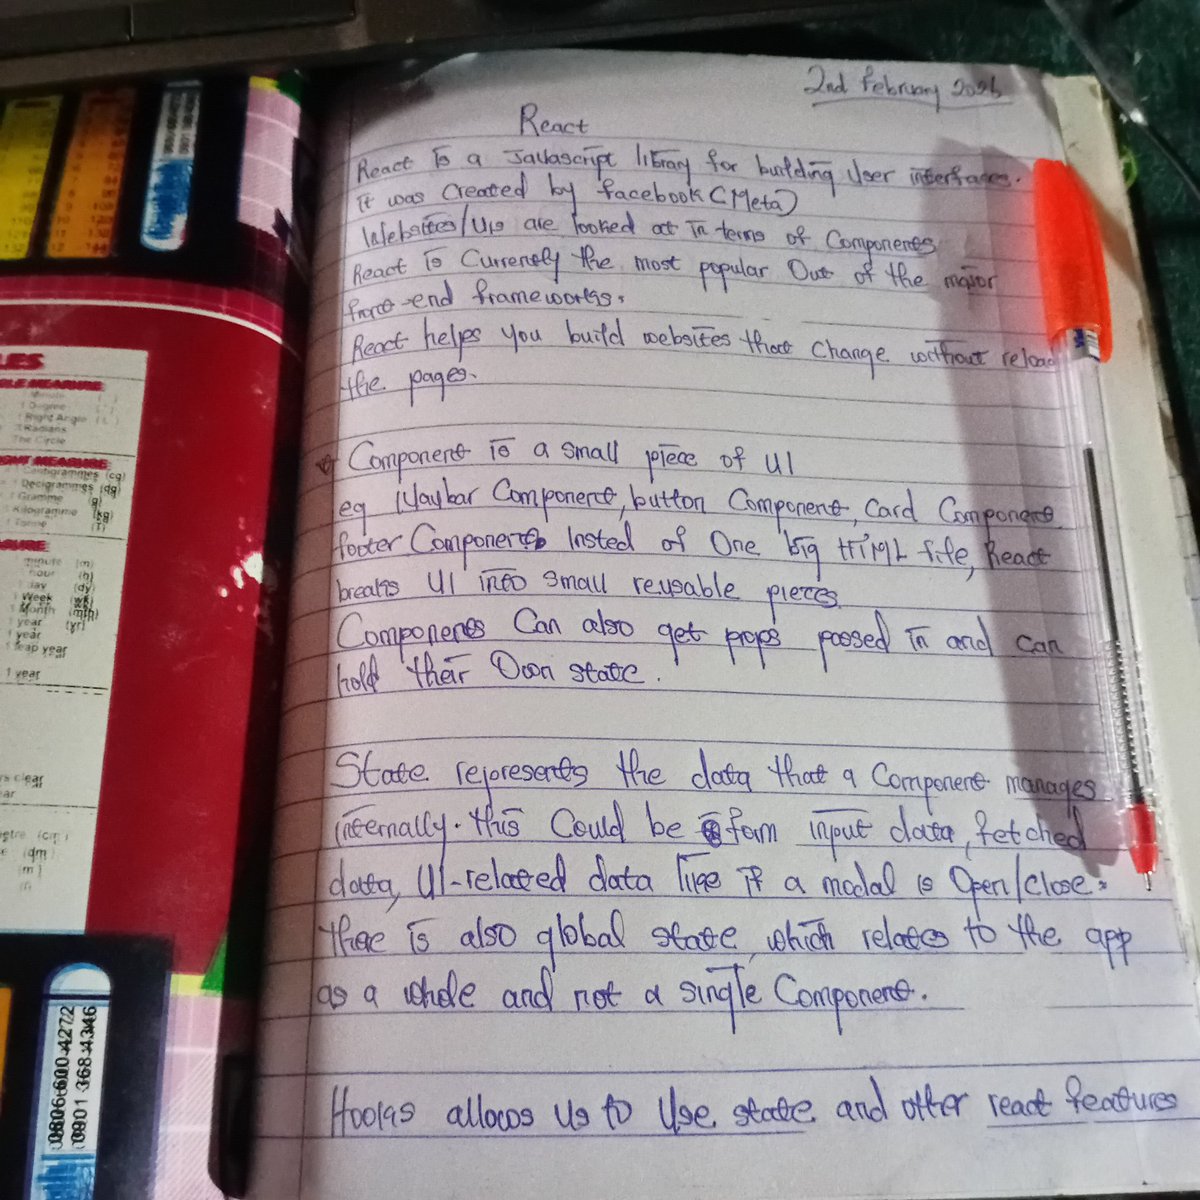 2nd February 2026
React
React is a Javascript library for building User interfaces.
it was created by facebook (Meta)
Websites/UIs are looked at in terms of Components
React is Currently the most popular Out of the major
front-end frameworks.
React helps you build websites that change without reload
the pages.
Component is a small piece of UI
eg Navbar Component, button Component, Card Component
footer Component Insted of One big HTML file, React
breaks UI into small reusable pieces
Components Can also get props passed in and can
hold their Own state.
State represents the data that a Component manages
internally. this Could be form input data, fetched
data, UI-related data like if a modal is Open/close.
there is also global state, which relates to the app
as a whole and not a single Component.
Hooks allows us to Use state and other react features
LES
LE MEASURE
1 Minute
1 Degree
1 Right Angle
Radians
The Circle
GHT MEASURE
Centigrammes (cg)
Decigrammes (dg)
1 Gramme (g)
1 Kilogramme (kg)
1 Tonne (t)
SURE
minute (m)
hour (h)
1 day (dy)
1 Week (wk)
1 Month (mth)
1 year (yr)
1 year
1 leap year
1 year
clear
ar
etre (cm)
(dm)
(m)
0806-600-4272
0901 368 4346